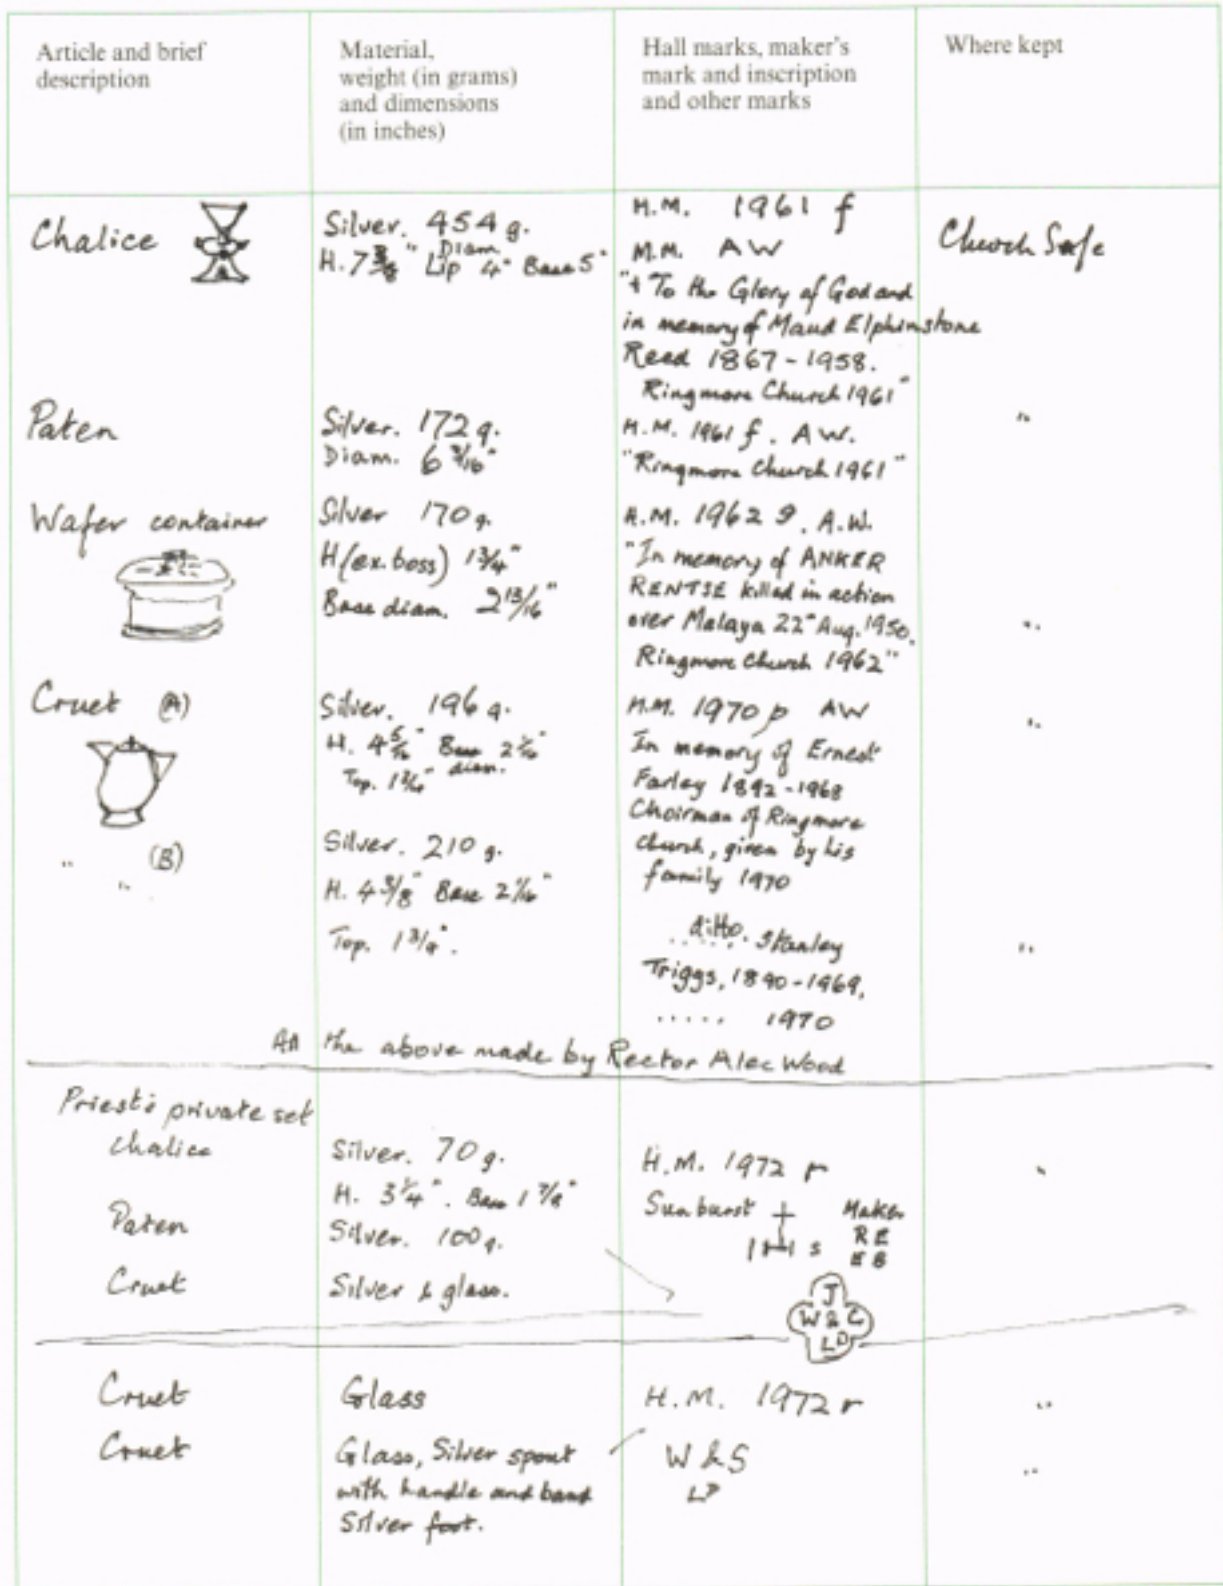 Article and brief
description
Material,
weight (in grams)
and dimensions
(in inches)
Hall marks, maker's
mark and inscription
and other marks
Where kept
Chalice
Silver. 454 g.
H. 7 3/8" Lip Diam 4" Base 5"
H.M. 1961 f
M.M. AW
"+ To the Glory of God and
in memory of Maud Elphinstone
Reed 1867-1958.
Ringmore Church 1961"
Church Safe
Paten
Silver. 172 g.
Diam. 6 3/16"
H.M. 1961 f. A W.
"Ringmore Church 1961"
"
Wafer container
Silver 170 g.
H (ex. boss) 1 3/4"
Base diam. 2 13/16"
H.M. 1962 g. A.W.
"In memory of ANKER
RENTSE killed in action
over Malaya 22" Aug. 1950.
Ringmore Church 1962"
"
Cruet (A)
Silver. 196 g.
H. 4 5/16" Base 2 1/16"
diam.
Top. 1 3/4"
H.M. 1970 p AW
In memory of Ernest
Farley 1892-1968
Chairman of Ringmore
Church, given by his
family 1970
"
" (B)
"
Silver. 210 g.
H. 4 3/8" Base 2 1/16"
Top. 1 3/4".
..ditto. Stanley
Triggs, 1890-1969,
..... 1970
"
All the above made by Rector Alec Wood
Priest's private set
Chalice
Silver. 70 g.
H. 3 1/4". Base 1 7/8"
H.M. 1972 r
"
Paten
Silver. 100 g.
Sunburst + Maker
IHS RE
EB
Cruet
Silver & glass.
J
W & C
LD
Cruet
Glass
H.M. 1972 r
"
Cruet
Glass, Silver spout
with handle and band
Silver foot.
W & S
LD
"